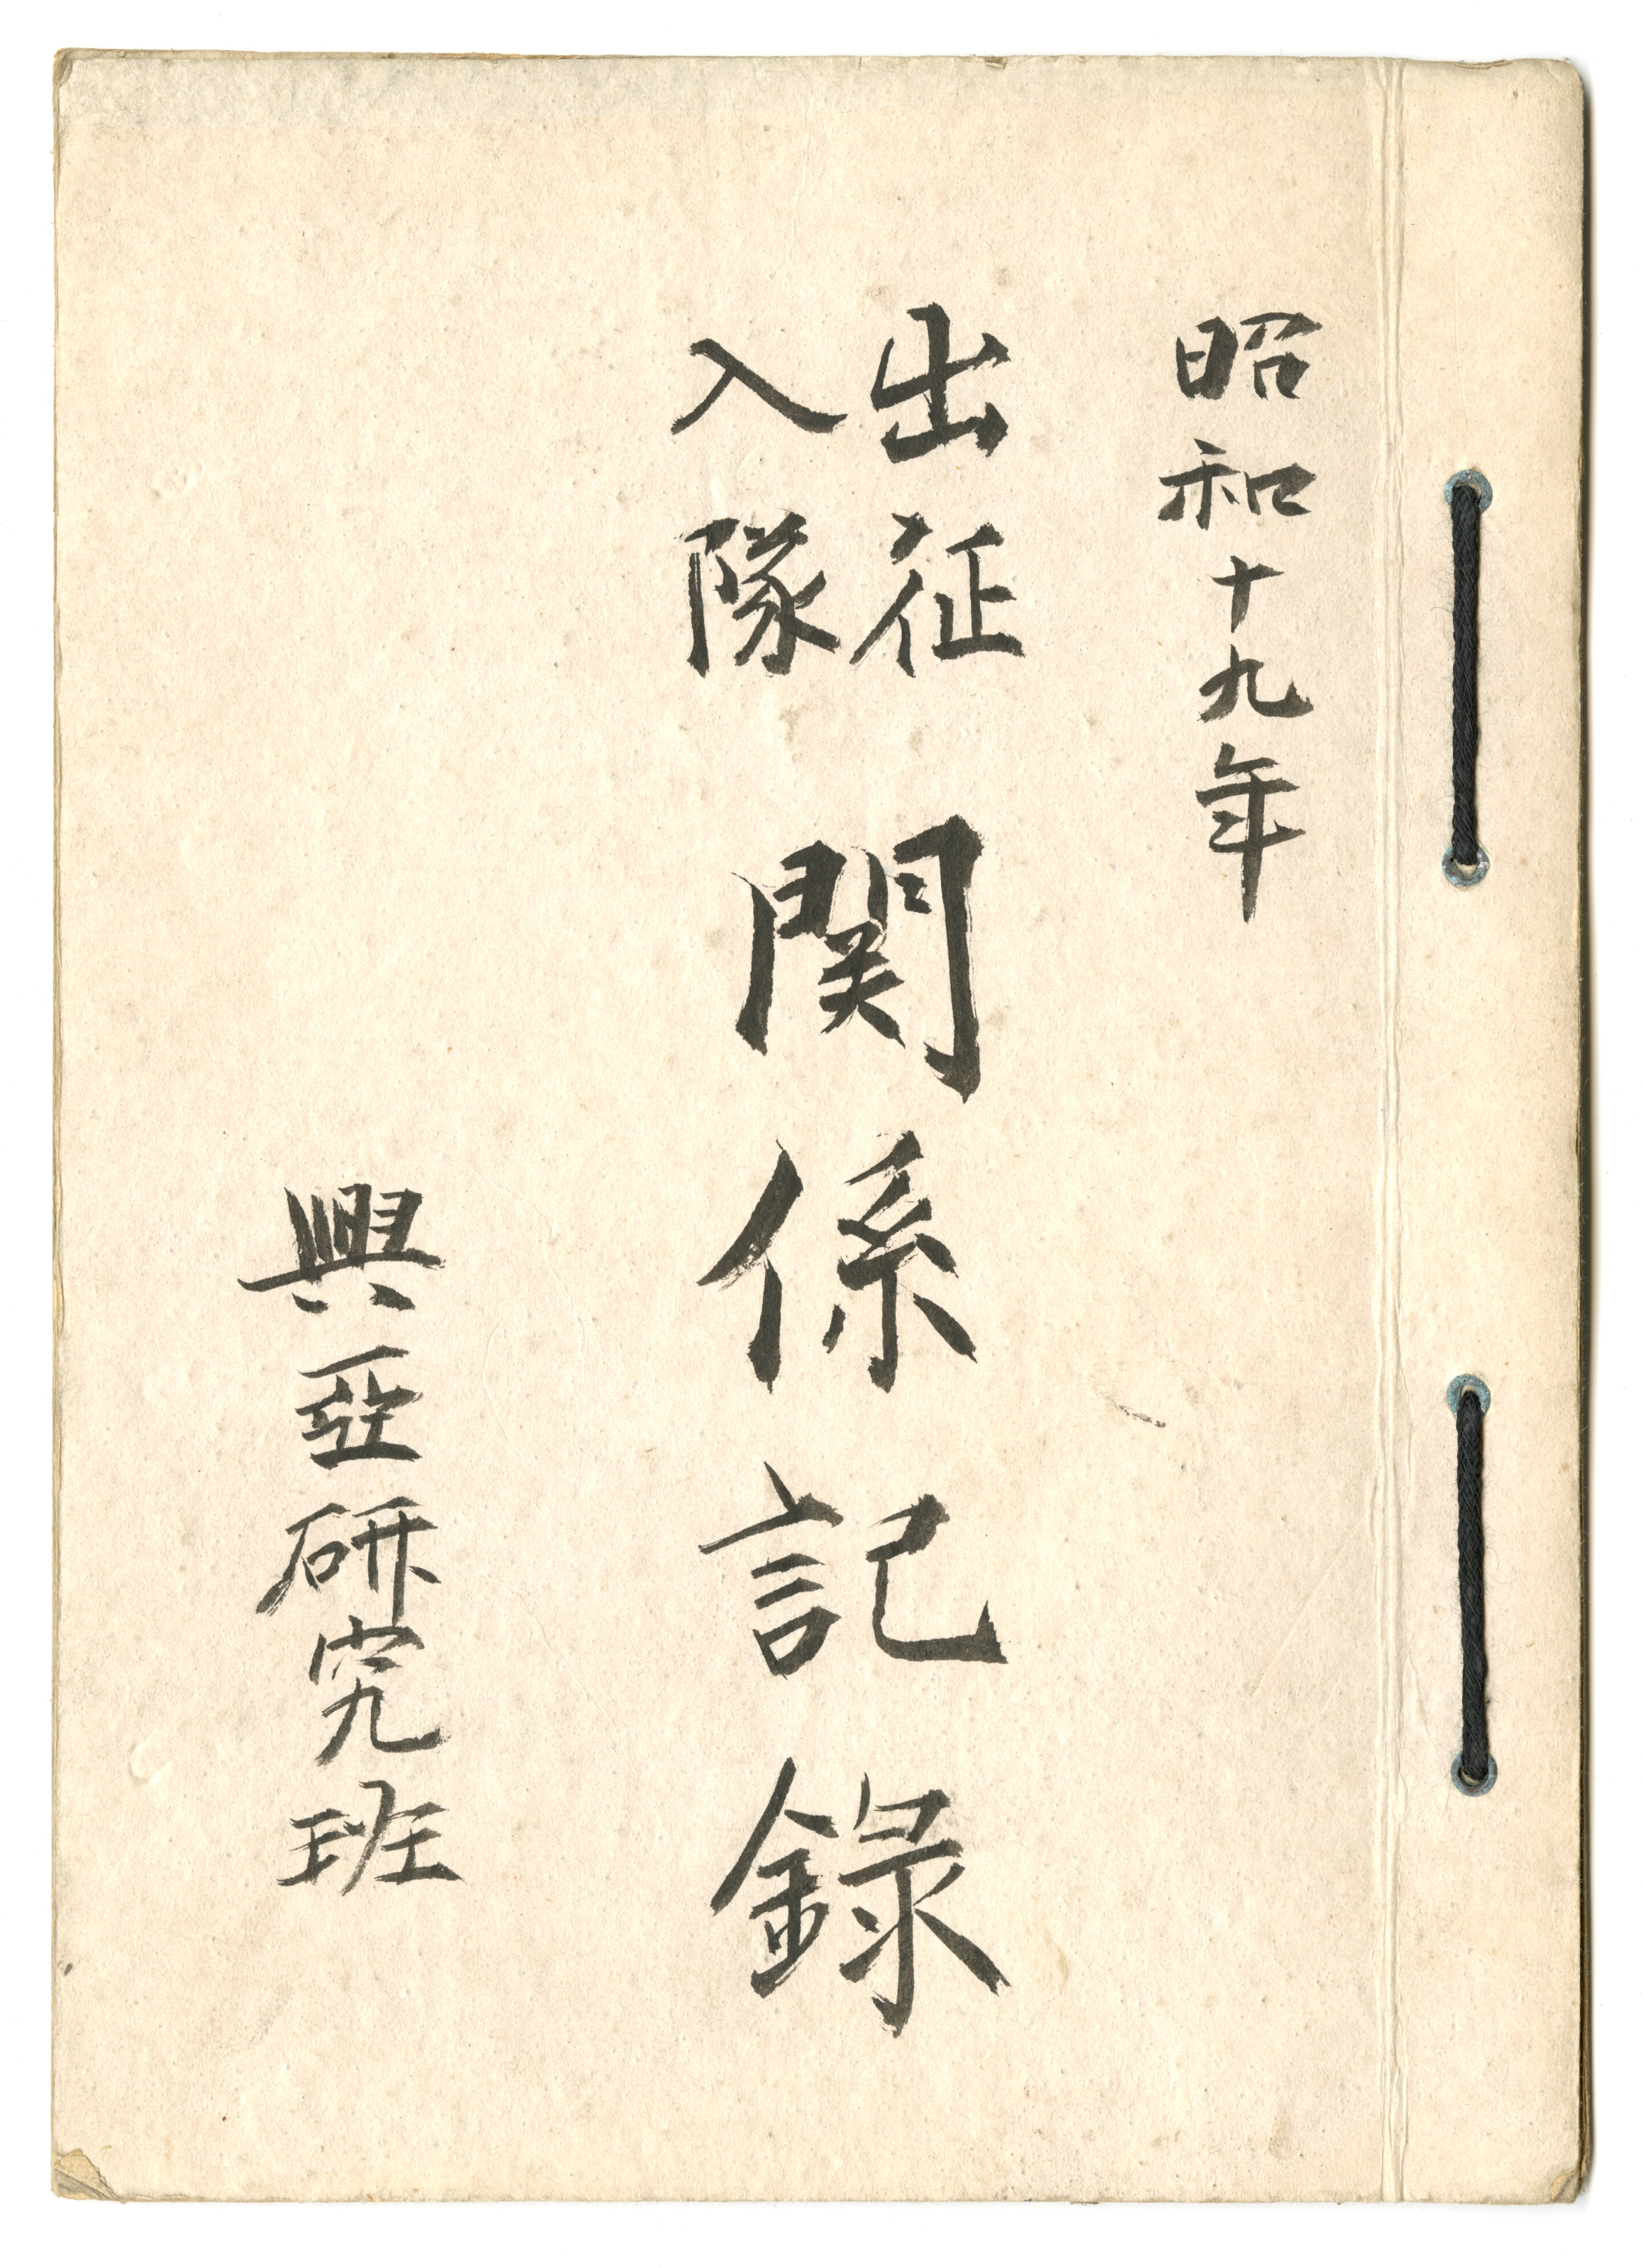 昭和十九年
出征
入隊
関係記録
興亞研究班